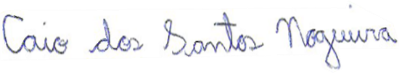 Caio dos Santos Nogueira